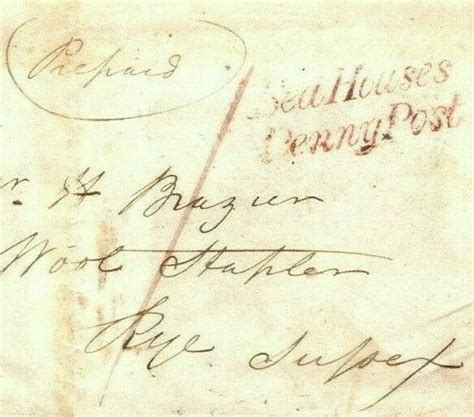 Prepaid
Sea Houses
Penny Post
r. H Brazier
Wool Stapler
Rye. Sussex